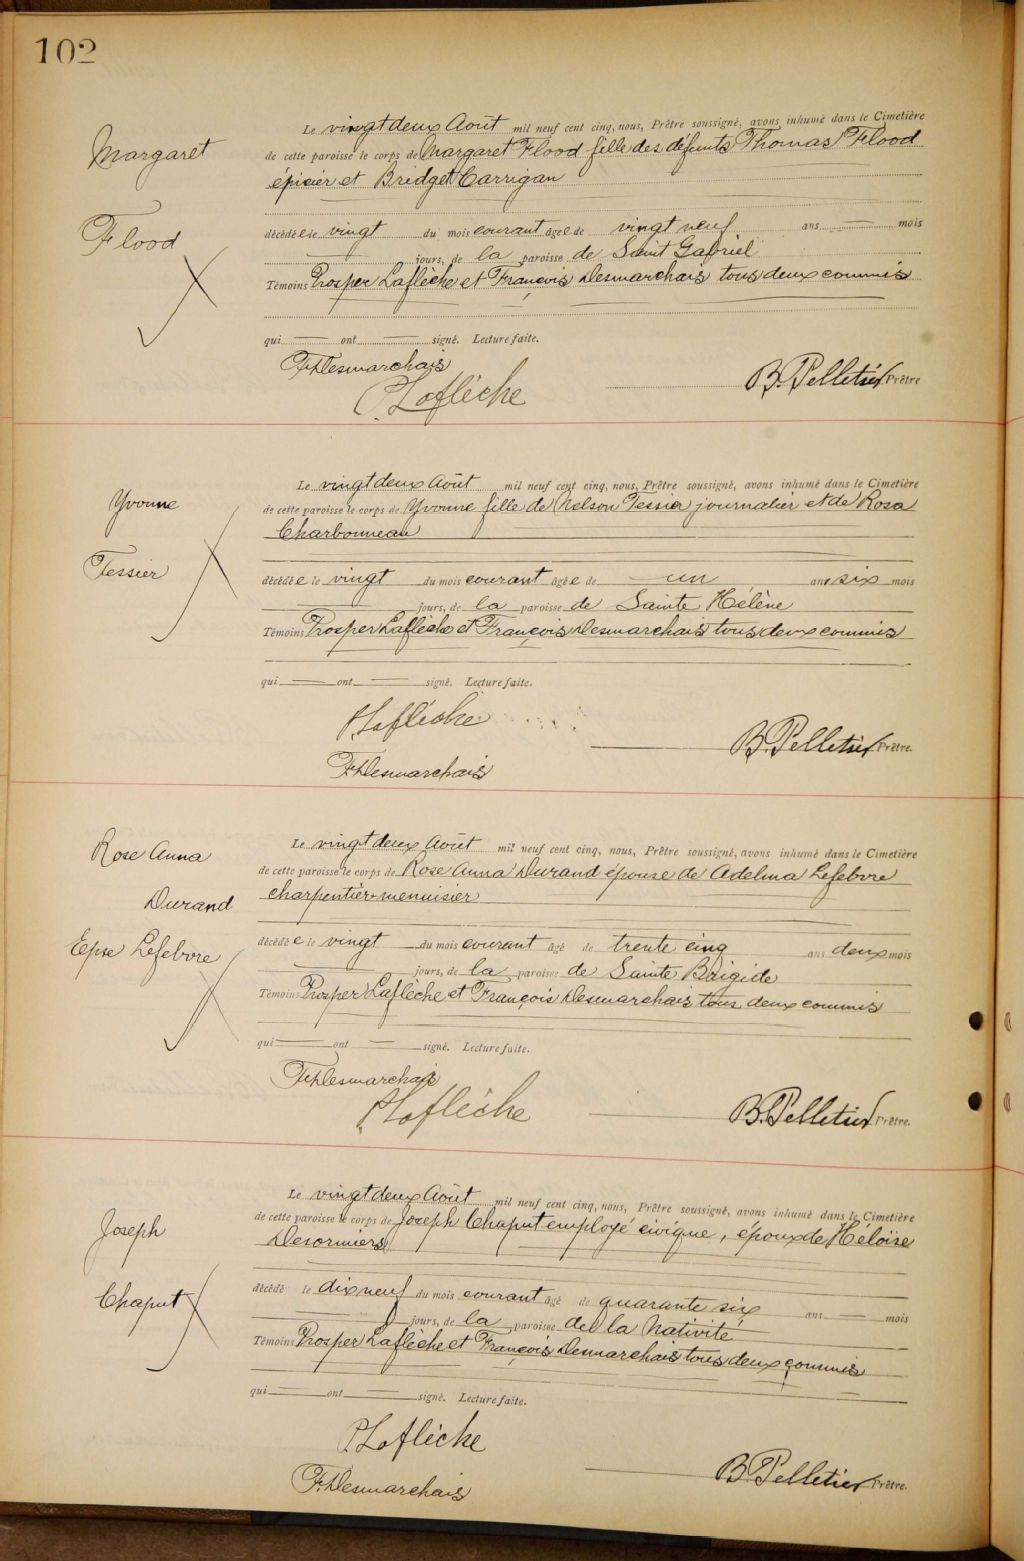 102
Margaret
Flood
Le vingt deux Août mil neuf cent cinq, nous, Prêtre soussigné, avons inhumé dans le Cimetière
de cette paroisse le corps de Margaret Flood fille des défunts Thomas Flood
épicier et Bridget Carrigan
décédée le vingt du mois courant âgée de vingt neuf ans — mois
— jours, de la paroisse de Saint Gabriel
Témoins Prosper Laflèche et François Desmarchais tous deux commis
qui — ont — signé. Lecture faite.
F. Desmarchais
P. Laflèche
B. Pelletier Prêtre
Yvonne
Tessier
Le vingt deux Août mil neuf cent cinq, nous, Prêtre soussigné, avons inhumé dans le Cimetière
de cette paroisse le corps de Yvonne fille de Nelson Tessier journalier et de Rosa
Charbonneau
décédée le vingt du mois courant âgée de — un ans six mois
— jours, de la paroisse de Sainte Hélène
Témoins Prosper Laflèche et François Desmarchais tous deux commis
qui — ont — signé. Lecture faite.
P. Laflèche
B. Pelletier Prêtre.
F. Desmarchais
Rose Anna
Durand
Epse Lefebvre
Le vingt deux Août mil neuf cent cinq, nous, Prêtre soussigné, avons inhumé dans le Cimetière
de cette paroisse le corps de Rose Anna Durand épouse de Adelma Lefebvre
charpentier-menuisier
décédée le vingt du mois courant âgé de trente cinq ans deux mois
— jours, de la paroisse de Sainte Brigide
Témoins Prosper Laflèche et François Desmarchais tous deux commis
qui — ont — signé. Lecture faite.
F. Desmarchais
P. Laflèche
B. Pelletier Prêtre.
Joseph
Chaput
Le vingt deux Août mil neuf cent cinq, nous, Prêtre soussigné, avons inhumé dans le Cimetière
de cette paroisse le corps de Joseph Chaput employé civique, époux de Héloïse
Desormiers
décédé le dix neuf du mois courant âgé de quarante six ans — mois
— jours, de la paroisse de la Nativité
Témoins Prosper Laflèche et François Desmarchais tous deux commis
qui — ont — signé. Lecture faite.
P. Laflèche
B. Pelletier Prêtre.
F. Desmarchais